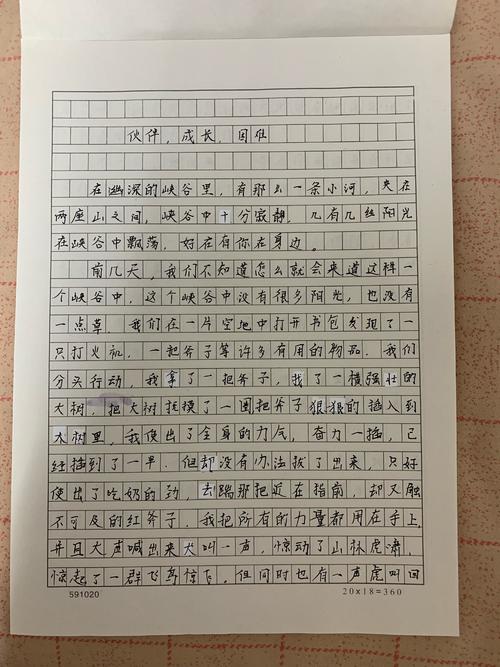 伙伴，成长，困难
在幽深的峡谷里，有那么一条小河，夹在
两座山之间，峡谷中十分寂静，几有几丝阳光
在峡谷中飘荡，好在有你在身边。
前几天，我们不知道怎么就会来道这样一
个峡谷中，这个峡谷中没有很多阳光，也没有
一点草，我们在一片空地中打开书包发现了一
只打火机，一起斧子等许多有用的物品。我们
分头行动，我拿了一把斧子，找了一横强壮的
大树，把大树摸了一圈把斧子狠狠的插入到
大树里，我使出了全身的力气，奋力一插，己
经插到了一半。但却没有办法拔了出来，只好
使出了吃奶的劲，去踹那把近在指前，却又触
不可及的红斧子，我把所有的力量都用在手上，
并且大声喊出来大叫一声，惊动了山林虎潇，
惊起了一群飞鸟惊飞。但同时也有一声虎叫回
591020
20×18=360